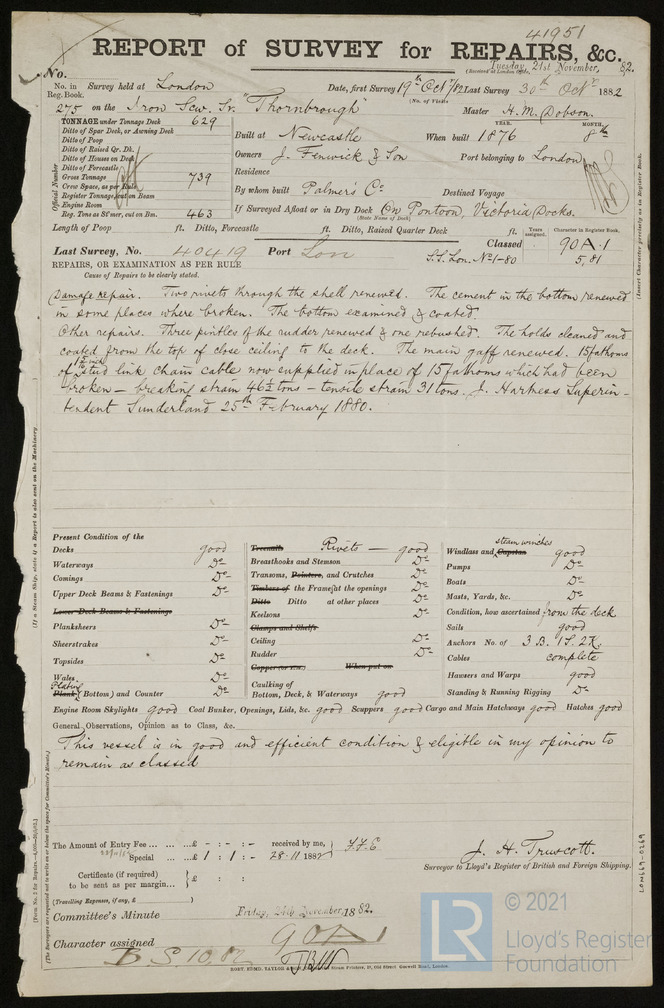 41951
REPORT of SURVEY for REPAIRS, &c.
Tuesday, 21st November, 82.
(Received at London Office,
No.
No. in Reg. Book. Survey held at London Date, first Survey 19th Oct/82 Last Survey 30th Octr 1882
(No. of Visits
275 on the Iron Scw. Sr. "Thornbrough" Master H. M. Dobson.
TONNAGE under Tonnage Deck 629
Ditto of Spar Deck, or Awning Deck
Ditto of Poop
Ditto of Raised Qr. Dk.
Ditto of Houses on Deck
Ditto of Forecastle
Gross Tonnage 739
Crew Space, as per Rule
Register Tonnage, cut on Beam
Engine Room
Reg. Tons as St'mer, cut on Bm. 463
Official Number
YEAR. MONTH.
Built at Newcastle When built 1876 8th
Owners J. Fenwick & Son Port belonging to London
Residence
By whom built Palmer's Co Destined Voyage
If Surveyed Afloat or in Dry Dock On Pontoon, Victoria Docks.
(State Name of Dock)
Length of Poop ft. Ditto, Forecastle ft. Ditto, Raised Quarter Deck ft.
Years assigned. Character in Register Book.
Last Survey, No. 40419 Port Lon Classed 90A.1
S.S. Lon. No1-80 5,81
REPAIRS, OR EXAMINATION AS PER RULE
Cause of Repairs to be clearly stated.
Damage repair. Two rivets through the shell renewed. The cement in the bottom renewed
in some places where broken. The bottom examined & coated.
Other repairs. Three pintles of the rudder renewed & one rebushed. The holds cleaned and
coated from the top of close ceiling to the deck. The main gaff renewed. 15 fathoms
of stud link chain cable now supplied in place of 15 fathoms which had been
broken – breaking strain 46½ tons – tensile strain 31 tons. J. Hartness Superin-
tendent Sunderland 25th February 1880.
Present Condition of the
Decks good
Waterways Do
Comings Do
Upper Deck Beams & Fastenings Do
Lower Deck Beams & Fastenings
Planksheers Do
Sheerstrakes Do
Topsides Do
Wales Do
Plating
Plank (Bottom) and Counter Do
Treenails Rivets – good
Breasthooks and Stemson Do
Transoms, Pointers, and Crutches Do
Timbers of the Frame at the openings Do
Ditto Ditto at other places Do
Keelsons Do
Clamps and Shelfs
Ceiling Do
Rudder Do
Copper When put on
Caulking of
Bottom, Deck, & Waterways good
steam winches
Windlass and Capstan good
Pumps Do
Boats Do
Masts, Yards, &c. Do
Condition, how ascertained from the deck
Sails good
Anchors No. of 3 B. 1 S. 2 K.
Cables complete
Hawsers and Warps good
Standing & Running Rigging Do
Engine Room Skylights good Coal Bunker, Openings, Lids, &c. good Scuppers good Cargo and Main Hatchways good Hatches good
General Observations, Opinion as to Class, &c.
This vessel is in good and efficient condition & eligible in my opinion to
remain as classed
The Amount of Entry Fee ... £ - : - : - received by me,
Special ... £ 1 : 1 : - 28.11 1882
Certificate (if required) to be sent as per margin... £ : :
(Travelling Expenses, if any, £ )
J. H. Truscott.
Surveyor to Lloyd's Register of British and Foreign Shipping.
Committee's Minute Friday, 24th November, 1882.
Character assigned 90A1
B.S. 10,82
(Insert Character precisely as in Register Book.
(If a Steam Ship, state if a Report is also sent on the Machinery.
(The Surveyors are requested not to write on or below the space for Committee's Minute.)
LON669-0269
© 2021
LR
Lloyd's Register
Foundation